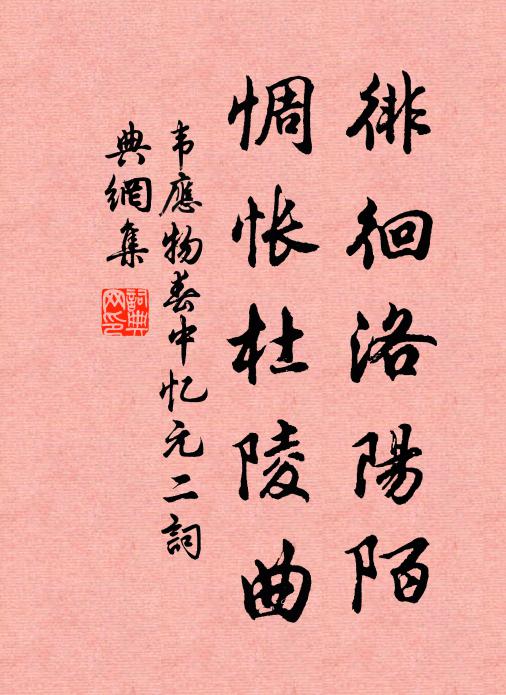 徘徊洛陽陌
惆怅杜陵曲
韦應物春中忆元二詞
典網集
詞典网印